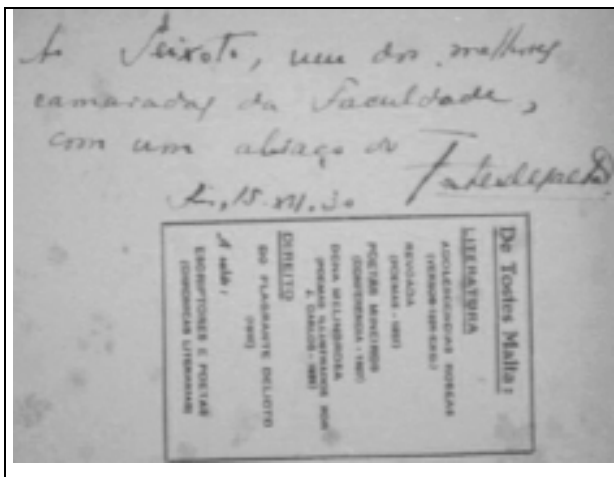 Ao Peixoto, um dos melhores
camaradas da Faculdade,
com um abraço do
15.XII.30
De Tostes Malta:
LITERATURA
ADOLESCENCIAS ROSEAS
REVOADA
POETAS MINEIROS
DONA MELINDROSA
(POEMAS ILLUSTRADOS POR
J. CARLOS
DIREITO
DO FLAGRANTE DELICTO
A sahir:
ESCRIPTORES E POETAS
(CHRONICAS LITERARIAS)